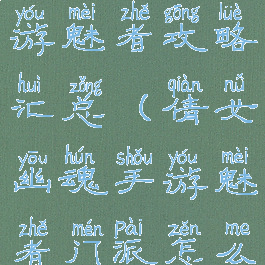 yóu mèi zhě gōng lüè
游魅者攻略
huì zǒng qiàn nǚ
汇总(倩女
yōu hún shǒu yóu mèi
幽魂手游魅
zhě mén pài zěn me
者门派怎么